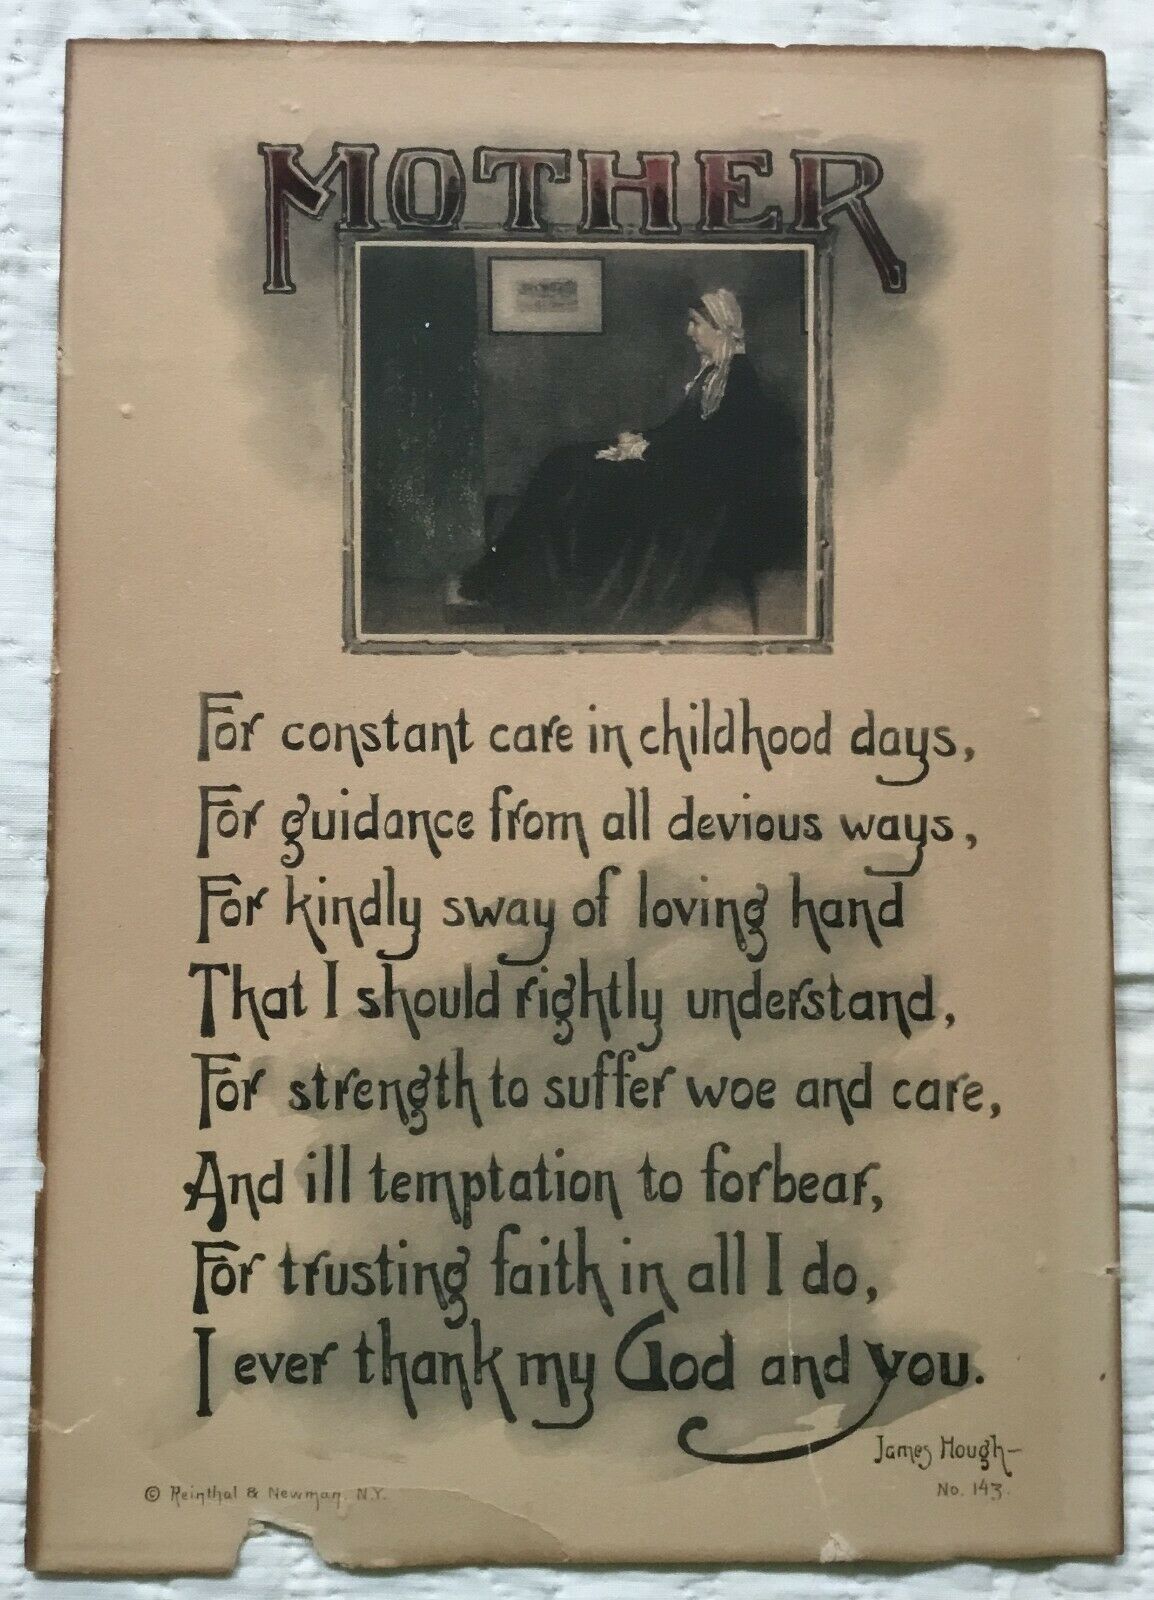 MOTHER
For constant care in childhood days,
For guidance from all devious ways,
For kindly sway of loving hand
That I should rightly understand,
For strength to suffer woe and care,
And ill temptation to forbear,
For trusting faith in all I do,
I ever thank my God and you.
James Hough—
© Reinthal & Newman, N.Y.
No. 143.